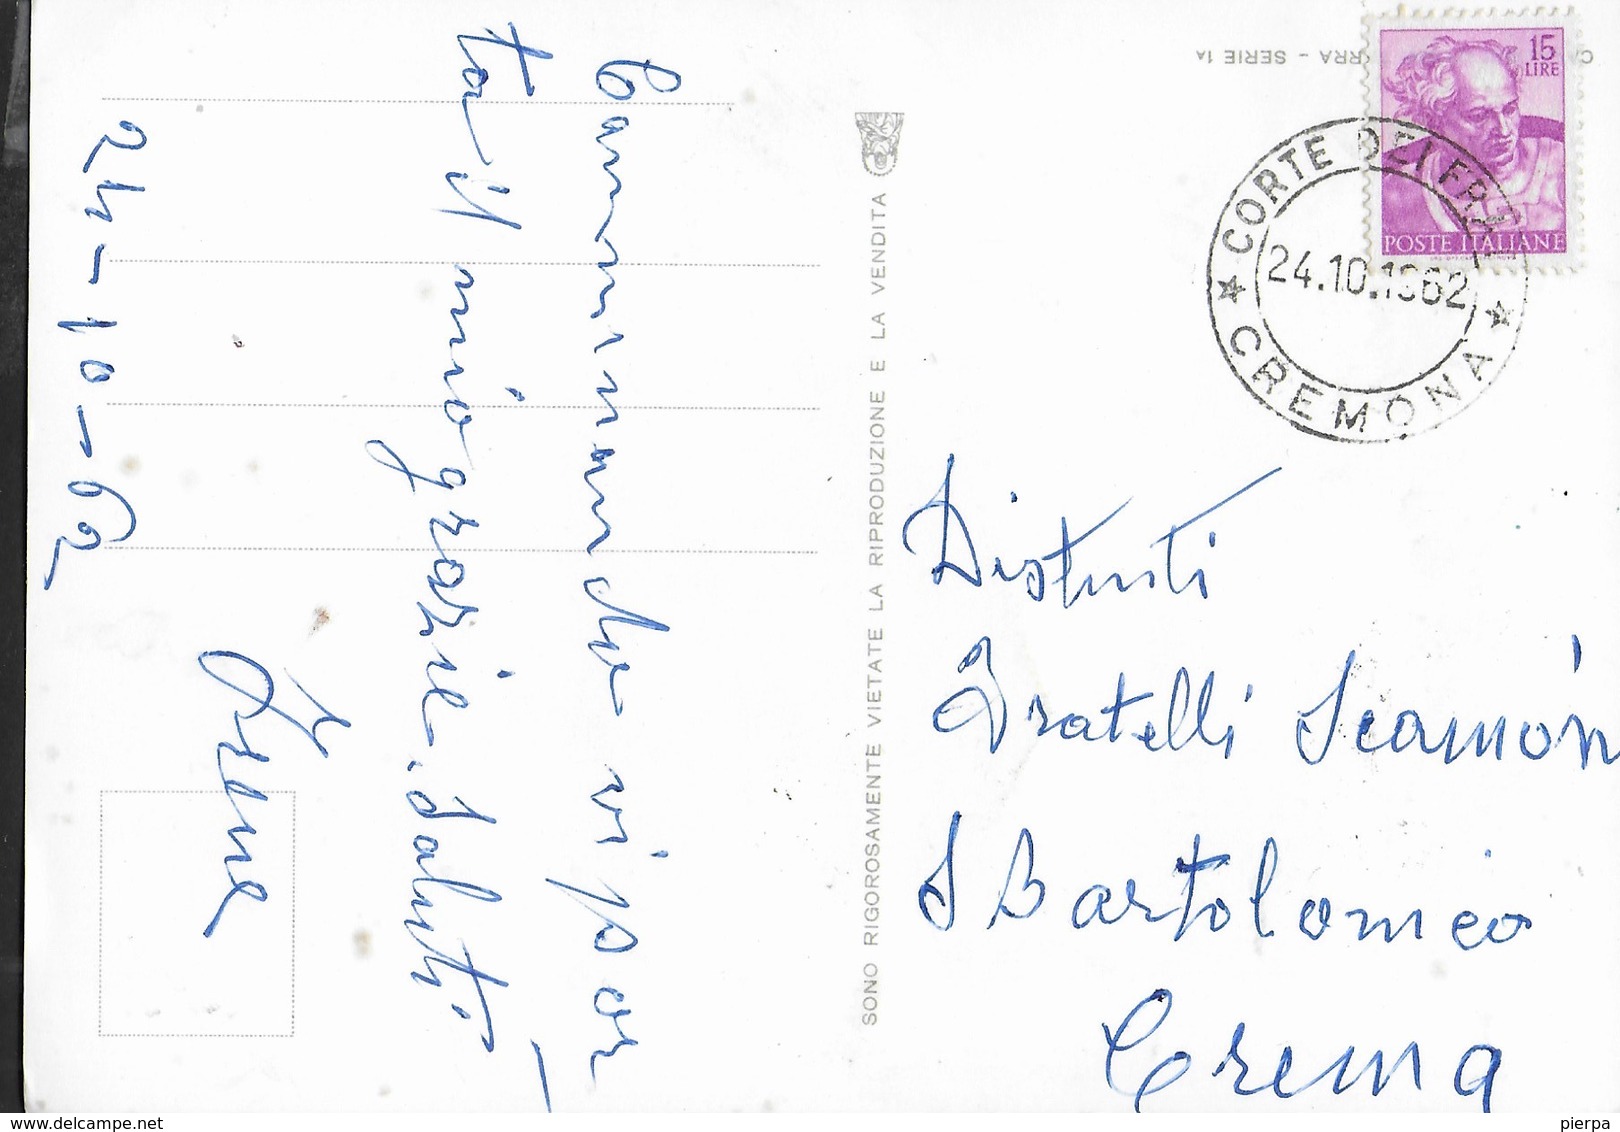 Camminando vi por-
to il mio grazie. Saluti
Irene
24-10-62
SONO RIGOROSAMENTE VIETATE LA RIPRODUZIONE E LA VENDITA
RRA - SERIE 1A
15
LIRE
POSTE ITALIANE
CORTE DEI FRA
24.10.1962
CREMONA
Distinti
Fratelli Scamon
S Bartolomeo
Crema
delcampe.net
pierpa